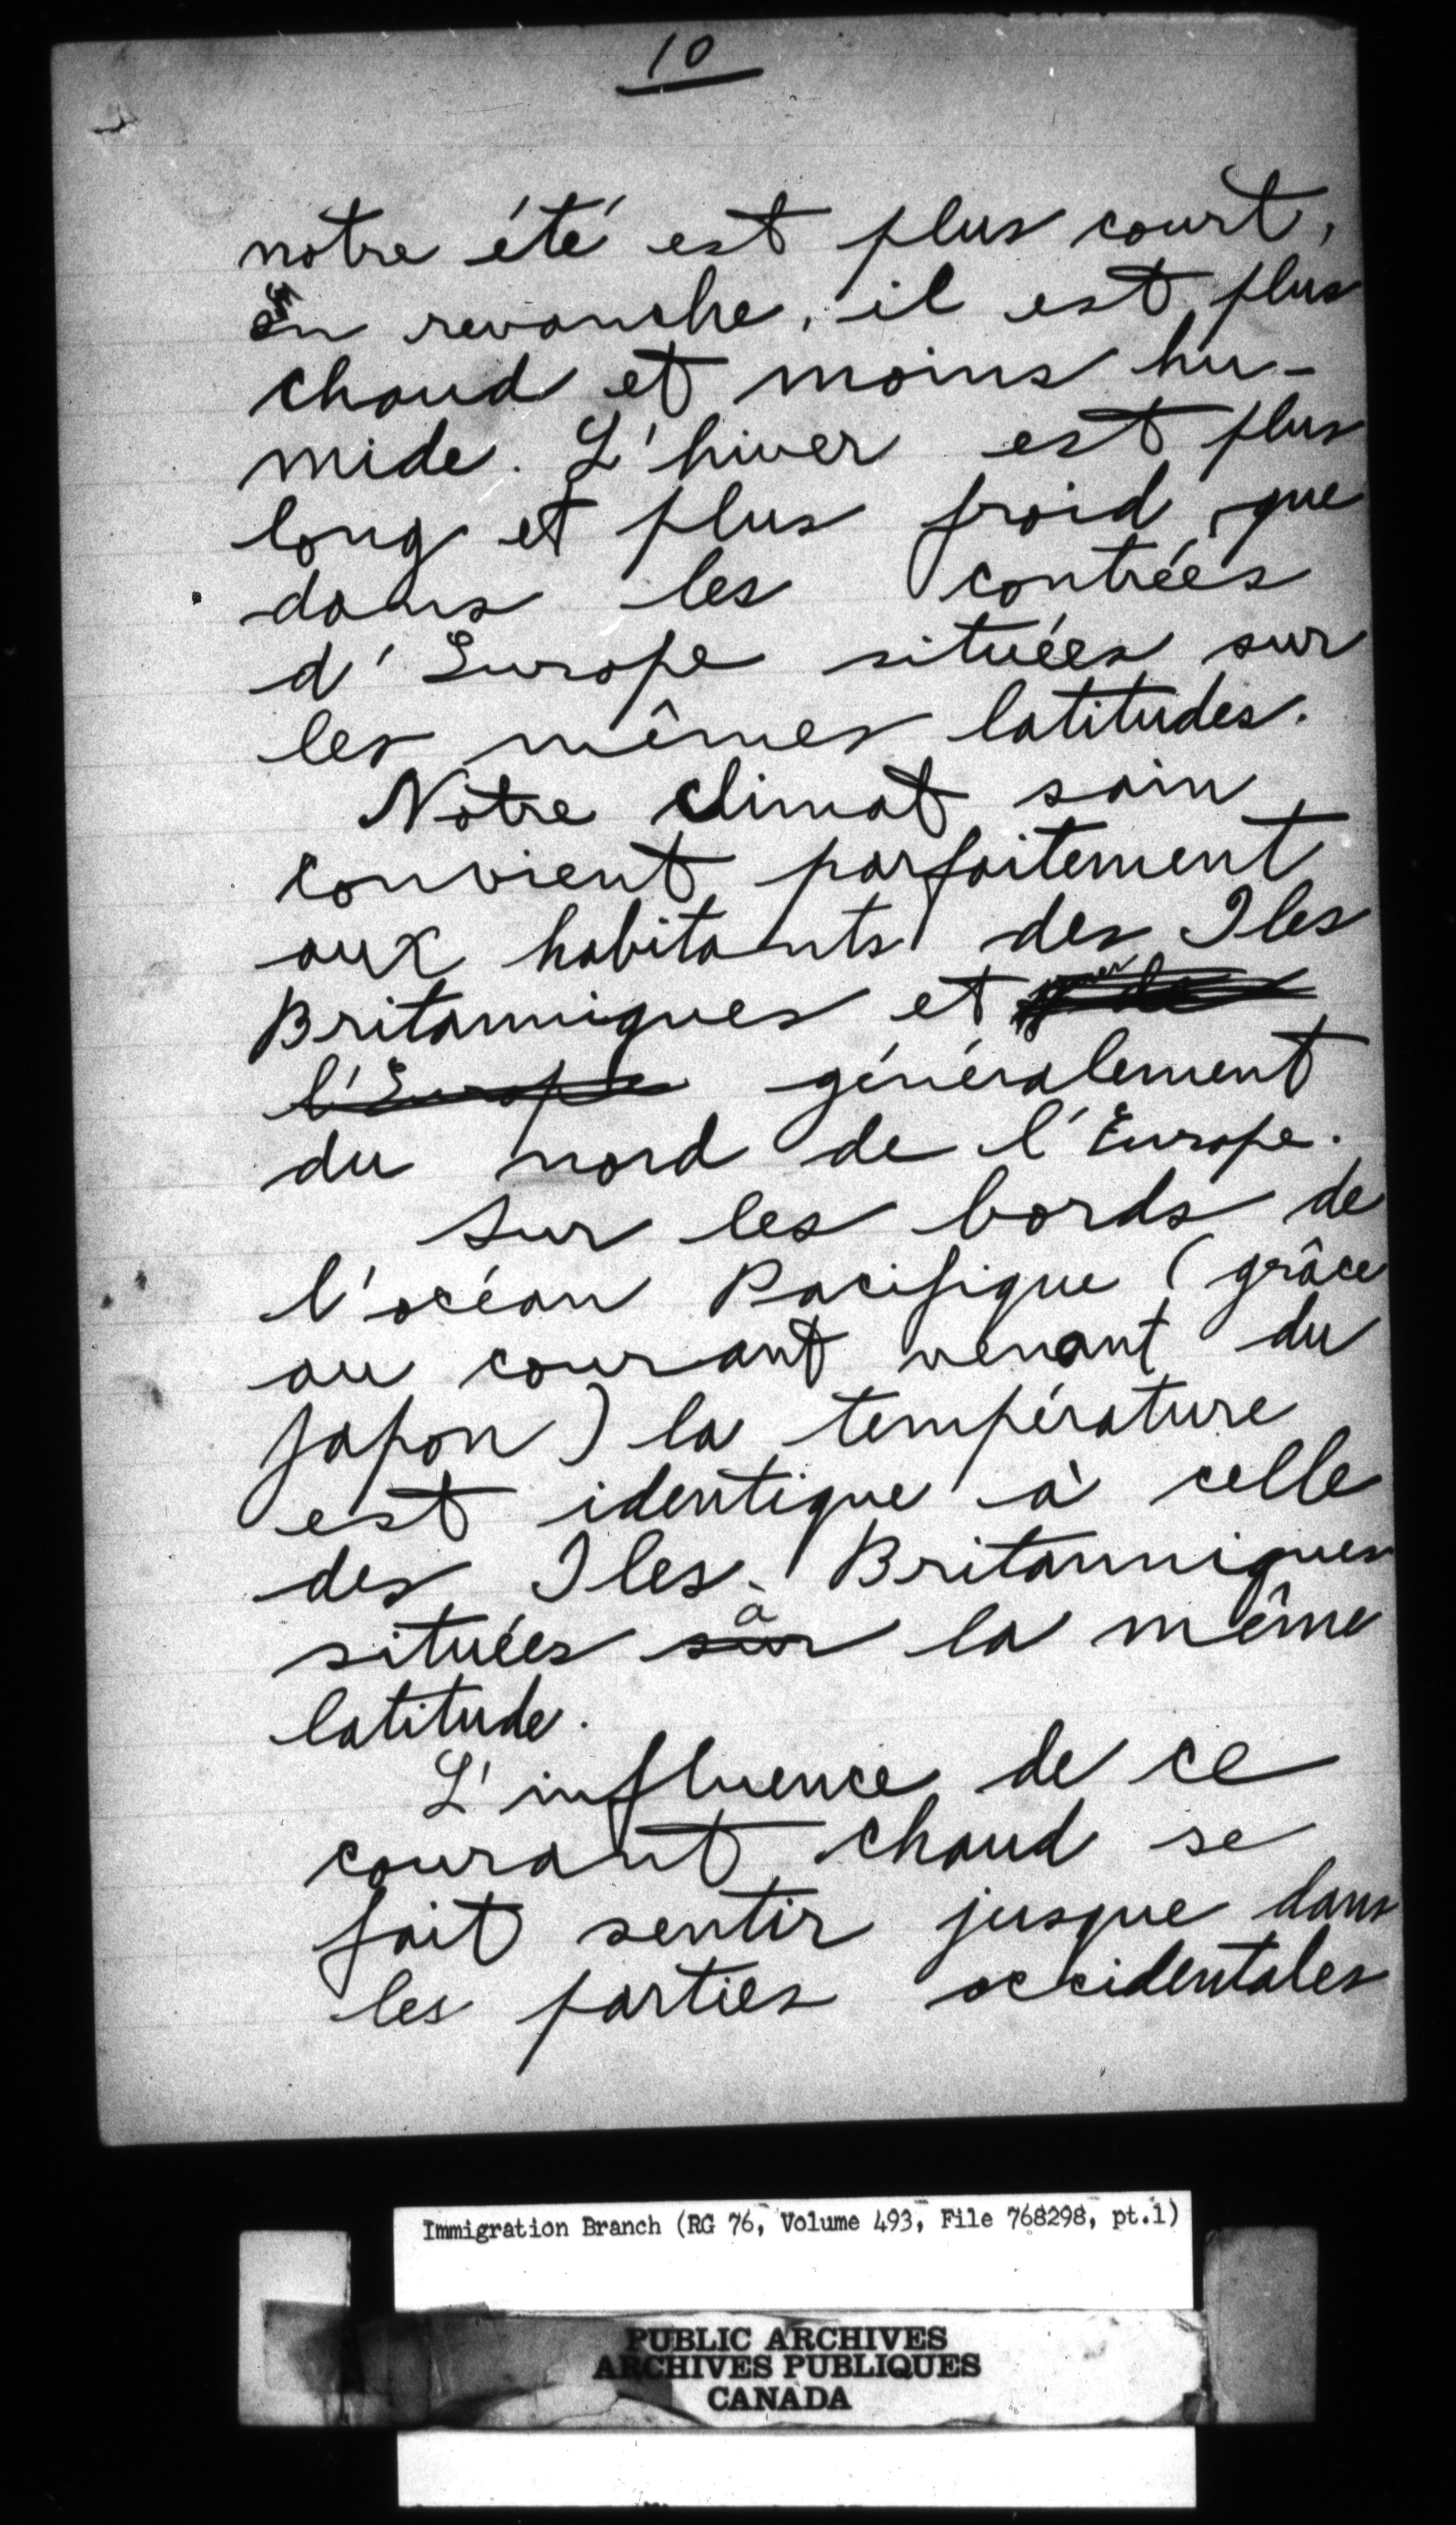 10
notre été est plus court,
En revanche, il est plus
chaud et moins hu-
mide. L'hiver est plus
long et plus froid que
dans les contrées
d'Europe situées sur
les mêmes latitudes.
Notre climat sain
convient parfaitement
aux habitants des Iles
Britanniques et
l'Europe généralement
du nord de l'Europe.
Sur les bords de
l'océan Pacifique (grâce
au courant venant du
Japon) la température
est identique à celle
des Iles Britanniques
à
situées sur la même
latitude.
L'influence de ce
courant chaud se
fait sentir jusque dans
les parties occidentales
Immigration Branch (RG 76, Volume 493, File 768298, pt.1)
PUBLIC ARCHIVES
ARCHIVES PUBLIQUES
CANADA